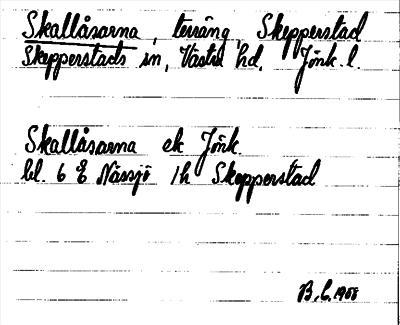 Skallåsarna, terräng, Skepperstad
Skepperstads sn, Västra hd, Jönk. l.
Skallåsarna ek Jönk.
bl. 6 E Nässjö 1h Skepperstad
B.L. 1968